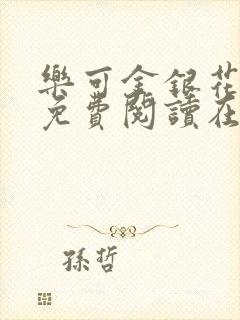 樂可金銀花
免費閱讀在
孫哲